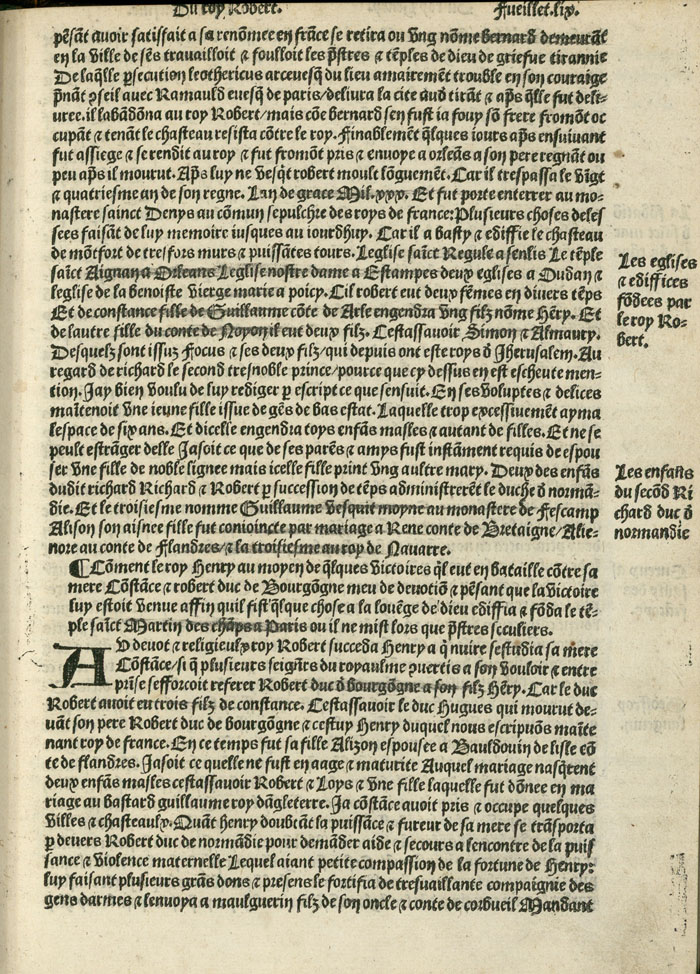 Du roy Robert.
Fueillet.lix.
pēsāt auoir satisfait a sa renōmee en frāce se retira ou vng nōme bernard demeurāt
en la ville de sēs trauailloit ⁊ foulloit les p̄stres ⁊ tēples de dieu de griefue tirannie
De laq̄lle p̱secution leothericus arceuesq̄ du lieu amairemēt trouble en son couraige
p̄nāt ꝯseil auec Ramauld euesq̄ de paris/deliura la cite aud̄ tirāt ⁊ ap̄s q̄lle fut deli-
uree.il labādōna au roy Robert/mais cōe bernard sen fust ia fouy sō frere fromōt oc
cupāt ⁊ tenāt le chasteau resista cōtre le roy.Finablemēt q̄lques iours ap̄s ensuiuant
fut assiege ⁊ se rendit au roy ⁊ fut fromōt pris ⁊ enuoye a orleās a son pere regnāt ou
peu ap̄s il mourut. Ap̄s luy ne vesq̄t robert moult lōguemēt. Car il trespassa le vīgt
⁊ quatriesme an de son regne. Lan de grace Mil.xxx. Et fut porte enterrer au mo-
nastere sainct Denys au cōmun sepulchre des roys de france:Plusieurs choses deles
sees faisāt de luy memoire iusques au iourdhuy. Car il a basty ⁊ ediffie le chasteau
de mōtfort de tresfors murs ⁊ puissātes tours. Leglise saīct Regule a senlis Le tēple
saīct Aignan a Orleans Leglise nostre dame a Estampes deux eglises a Oudan ⁊
leglise de la benoiste vierge marie a poicy. Cil robert eut deux fēmes en diuers tēps
Et de constance fille de Guillaume cōte de Arle engendra vng filz nōme Hēry. Et
de lautre fille du conte de Noyon il eut deux filz. Cestassauoir Simon ⁊ Almaury.
Desquelz sont issuz Focus ⁊ ses deux filz/qui depuis ont este roys d̄ Jherusalem. Au
regard de richard le second tresnoble prince/pource que cy dessus en est escheute men-
tion. Jay bien voulu de luy rediger p̱ escript ce que sensuit. En ses voluptes ⁊ delices
maītenoit vne ieune fille issue de gēs de bas estat. Laquelle trop excessiuemēt ayma
lespace de six ans. Et dicelle engendra toys enfās masles ⁊ autant de filles. Et ne se
peult estrāger delle Jasoit ce que de ses parēs ⁊ amys fust instāment requis de espou
ser vne fille de noble lignee mais icelle fille print vng aultre mary. Deux des enfās
dudit richard Richard ⁊ Robert p̱ succession de tēps administrerēt le duche d̄ normā-
die. Et le troisiesme nomme Guillaume vesquit moyne au monastere de Fescamp
Alison son aisnee fille fut conioincte par mariage a Rene conte de Bretaigne/Alie-
nore au conte de Flandres/⁊ la troisiesme au roy de Nauarre.
¶Cōment le roy Henry au moyen de q̄lques victoires q̄l eut en bataille cōtre sa
mere Cōstāce ⁊ robert duc de Bourgōgne meu de deuotiō ⁊ pēsant que la victoire
luy estoit venue affin quil fist q̄lque chose a la louēge de dieu ediffia ⁊ fōda le tē-
ple saīct Martin des chāps a Paris ou il ne mist lors que p̄stres seculiers.
AU deuot ⁊ religieulx roy Robert succeda Henry a q̄ nuire sestudia sa mere
Cōstāce/si q̄ plusieurs seignr̄s du royaulme ꝯuertis a son vouloir ⁊ entre
prīse sefforcoit referer Robert duc d̄ bourgōgne a son filz Hēry. Car le duc
Robert auoit eu trois filz de constance. Cestassauoir le duc Hugues qui mourut de-
uāt son pere Robert duc de bourgōgne ⁊ cestuy Henry duquel nous escripuōs maīte
nant roy de france. En ce temps fut sa fille Alizon espousee a Bauldouin de lisle cō
te de flandres. Jasoit ce quelle ne fust en aage ⁊ maturite Auquel mariage nasq̄rent
deux enfās masles cestassauoir Robert ⁊ Loys ⁊ vne fille laquelle fut dōnee en ma
riage au bastard guillaume roy dāgleterre. Ja cōstāce auoit pris ⁊ occupe quelques
villes ⁊ chasteaulx. Quāt henry doubtāt la puissāce ⁊ fureur de sa mere se trāsporta
p̱ deuers Robert duc de normādie pour demāder aide ⁊ secours a lencontre de la puis
sance ⁊ violence maternelle Lequel aiant petite compassion de la fortune de Henry:
luy faisant plusieurs grās dons ⁊ presens le fortifia de tresuaillante compaignie des
gens darmes ⁊ lenuoya a maulguerin filz de son oncle ⁊ conte de corbueil Mandant
Les eglises
⁊ ediffices
fōdees par
le roy Ro-
bert.
Les enfans
du secōd Ri
chard duc d̄
normandie